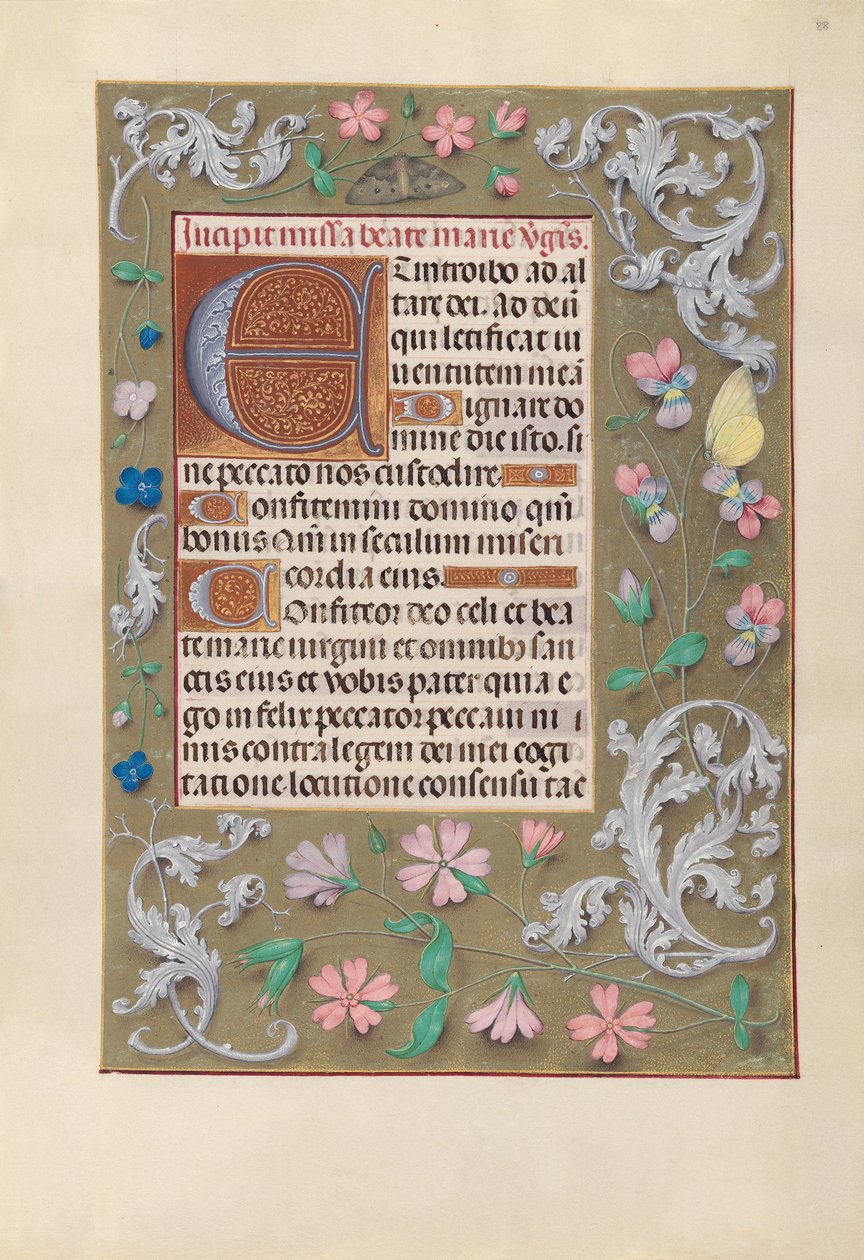 88
Incipit missa beate marie v̄gīs.
Et introibo ad al
tare dei. Ad deū
qui letificat iu
uentutem meā
Dignare do
mine die isto. si
ne peccato nos custodire.
Confitemini domino qm̄
bonus Qm̄ in seculum miseri
cordia eius.
Confiteor deo celi et bea
te marie virgini et omnibꝫ san
ctis eius et vobis pater quia e
go infelix peccator peccaui ni i
mis contra legem dei mei cogi
tatione. locutione consensū tac